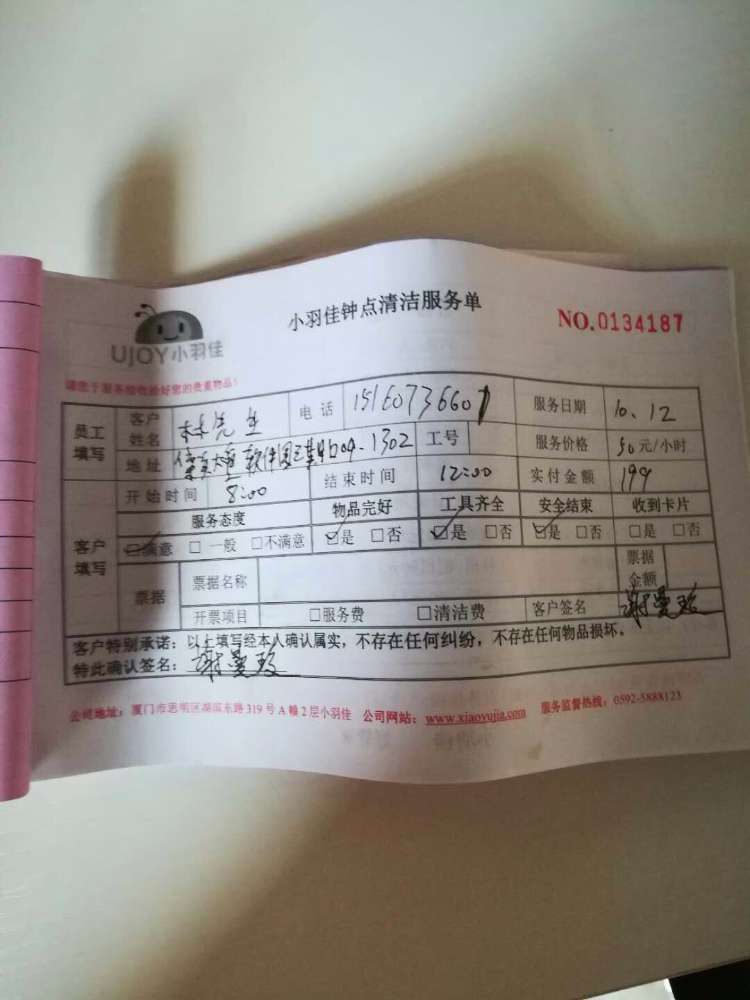 小羽佳钟点清洁服务单
NO.0134187
UJOY小羽佳
请您于服务前收拾好您的贵重物品!
员工填写 客户姓名 林先生 电话 15160736607 服务日期 10.12
地址 软件园三期 1302 工号 服务价格 50元/小时
开始时间 8:00 结束时间 12:00 实付金额 199
客户填写 服务态度 物品完好 工具齐全 安全结束 收到卡片
☑满意 □一般 □不满意 ☑是 □否 ☑是 □否 ☑是 □否 □是 □否
票据 票据名称 票据金额
开票项目 □服务费 □清洁费 客户签名 谢曼玲
客户特别承诺:以上填写经本人确认属实,不存在任何纠纷,不存在任何物品损坏。
特此确认签名:谢曼玲
公司地址:厦门市思明区湖滨东路319号A幢2层小羽佳 公司网站:www.xiaoyujia.com 服务监督热线:0592-5888123